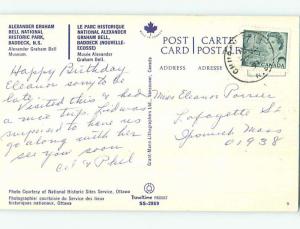 ALEXANDER GRAHAM
BELL NATIONAL
HISTORIC PARK,
BADDECK, N.S.
Alexander Graham Bell
Museum.
LE PARC HISTORIQUE
NATIONAL ALEXANDER
GRAHAM BELL,
BADDECK (NOUVELLE-
ECOSSE)
Musée Alexander
Graham Bell.
POST CARTE
CARD POSTALE
ADDRESS ADRESSE
CANADA
Happy Birthday
Eleanor sorry to be
late.
Visited this & had
a nice trip. Lid was
supposed to have
go along with her
see you soon
& Phil
Miss Eleanor Porrier
Lafayette St
Ipswich Mass
01938
Grant-Mann Lithographers Ltd., Vancouver, Canada
Photo Courtesy of National Historic Sites Service, Ottawa
Photographie courtoisie du Service des lieux
historiques nationaux, Ottawa
Traveltime PRODUCT
SS-2869